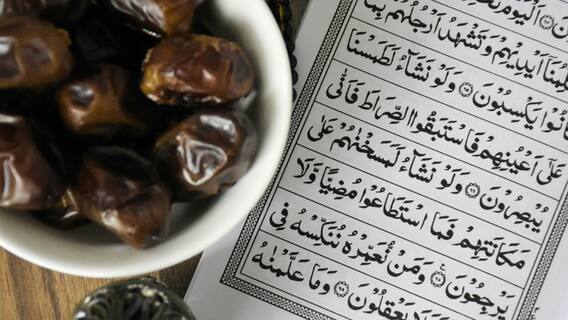 اَلْيَوْمَ
اَيْدِيْهِمْ وَتَشْهَدُ اَرْجُلُهُمْ بِمَا
كَانُوْا يَكْسِبُوْنَ ۝٦٥ وَلَوْ نَشَآءُ لَطَمَسْنَا
عَلٰٓى اَعْيُنِهِمْ فَاسْتَبَقُوا الصِّرَاطَ فَاَنّٰى
يُبْصِرُوْنَ ۝٦٦ وَلَوْ نَشَآءُ لَمَسَخْنٰهُمْ عَلٰى
مَكَانَتِهِمْ فَمَا اسْتَطَاعُوْا مُضِيًّا وَّلَا
يَرْجِعُوْنَ ۝٦٧ وَمَنْ نُّعَمِّرْهُ نُنَكِّسْهُ فِى
يَعْقِلُوْنَ ۝٦٨ وَمَا عَلَّمْنٰهُ